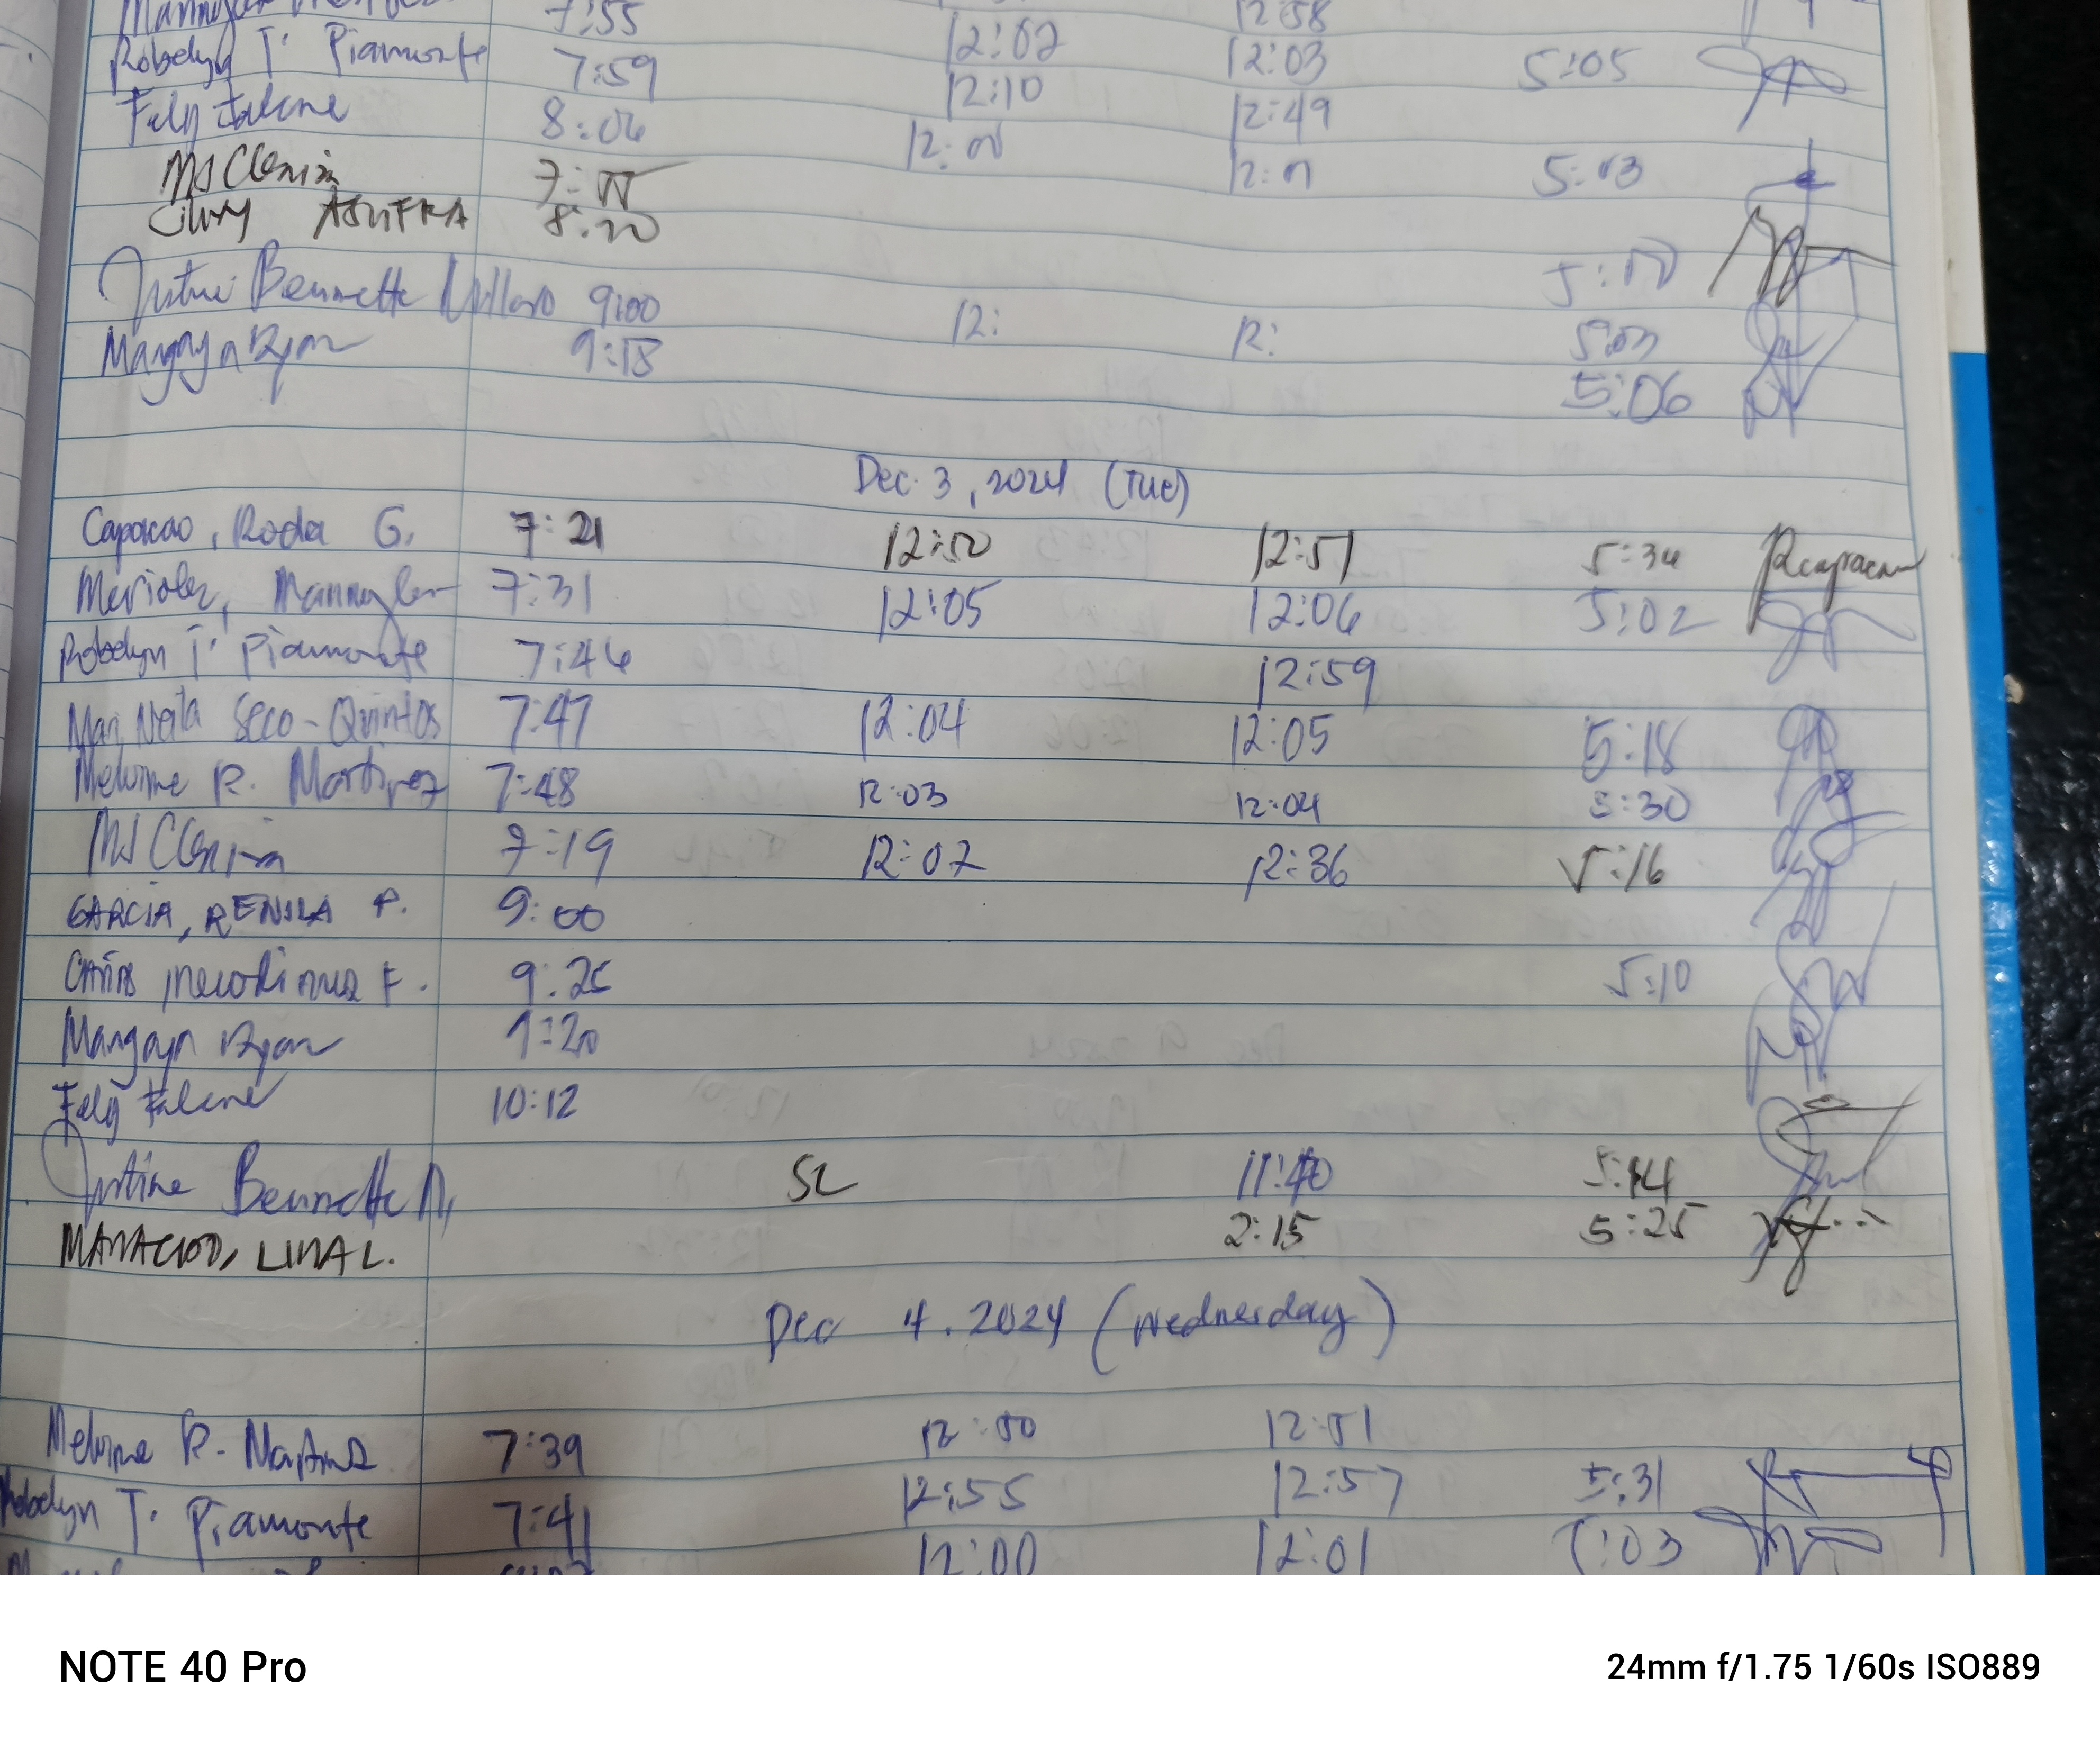 7:55 12:58
Robelyn T. Piamonte 7:59 12:02 12:03 5:05
Fely 8:06 12:10 12:49
MJ Clenia 7:55 12:00 12:01 5:03
8:20
Justine Bennette 9:00 12: 12: 5:10
Mangayn Ryan 9:18 5:03
5:06
Dec. 3, 2024 (Tue)
Capacao, Roda G. 7:21 12:50 12:51 5:34 Rcapacao
Meriales, Mannaylen 7:31 12:05 12:06 5:02
Robelyn T. Piamonte 7:46 12:59
Mary Neila Seco-Quintos 7:47 12:04 12:05 5:18
Melvine R. Martinez 7:48 12:03 12:04 5:30
MJ Clenia 7:19 12:02 12:36 5:16
GARCIA, RENILA P. 9:00
F. 9:26 5:10
Mangayn Ryan 9:20
Fely 10:12
Justine Bennette SL 11:40 5:14
LINA L. 2:15 5:25
Dec 4. 2024 (Wednesday)
Melvine R. Martinez 7:39 12:50 12:51
Robelyn T. Piamonte 7:41 12:55 12:57 5:31
12:00 12:01 5:03
NOTE 40 Pro
24mm f/1.75 1/60s ISO889